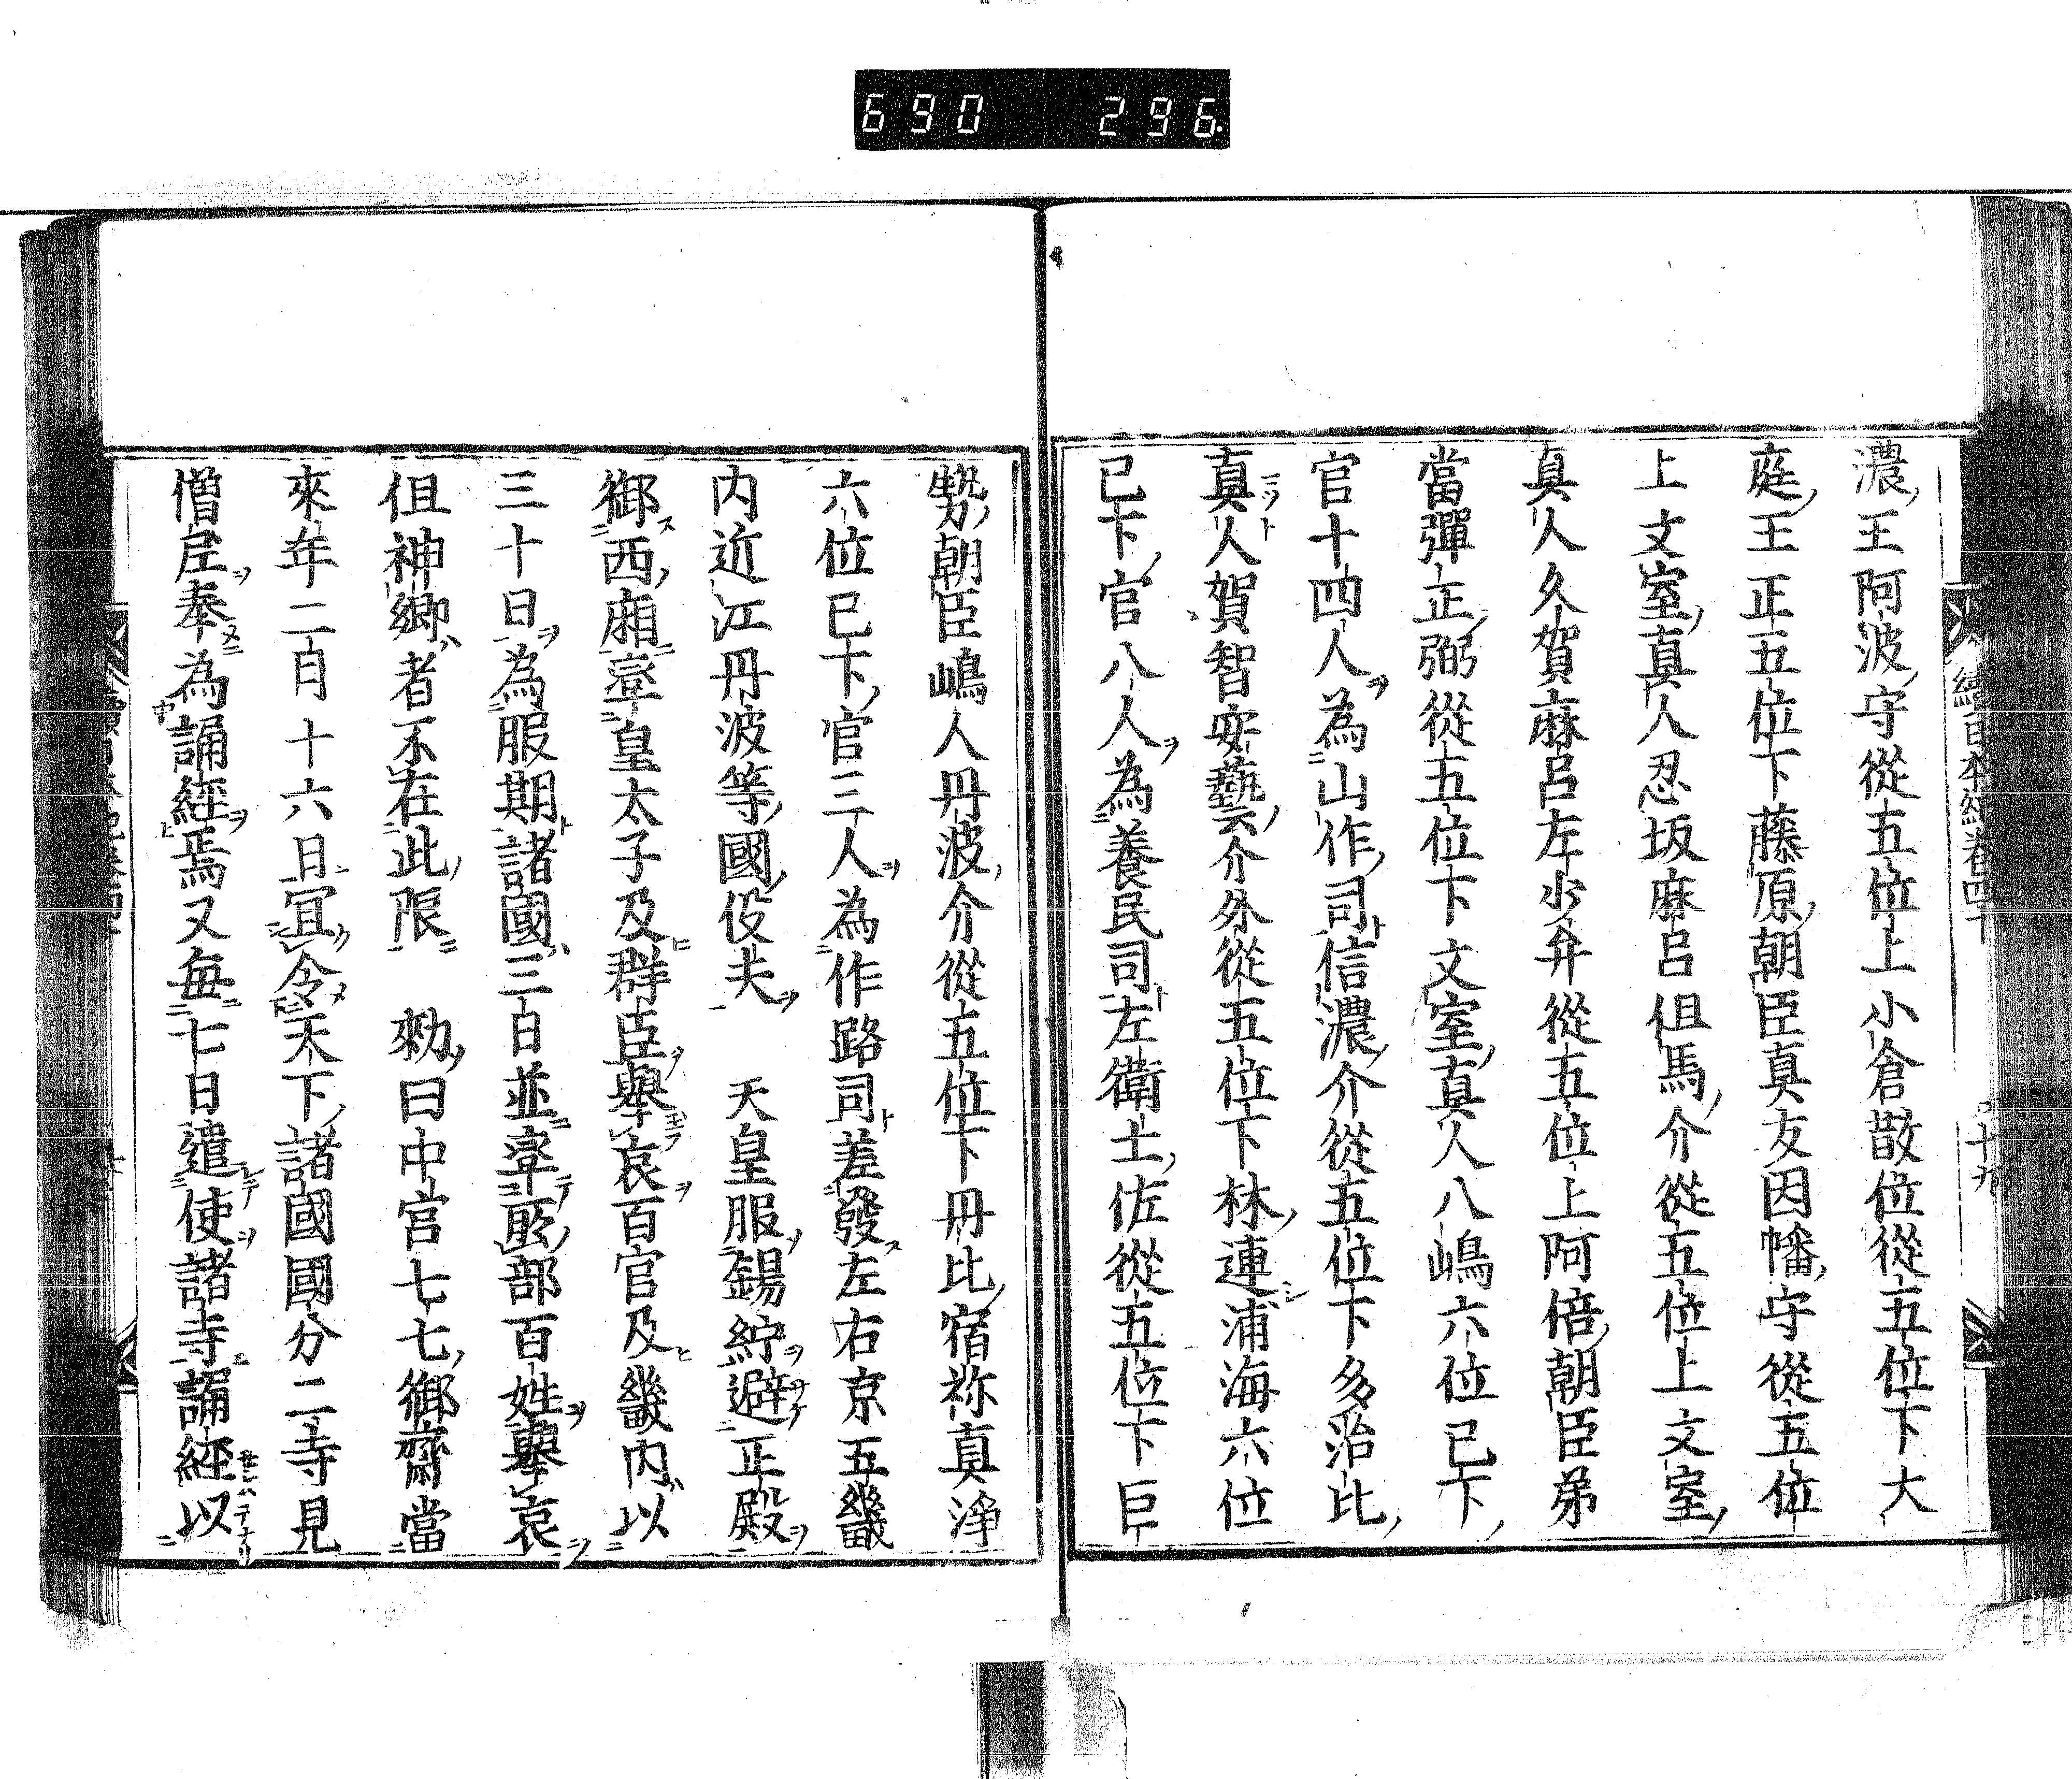 690 296
續日本紀卷四十
○十九
濃王阿波守從五位上小倉散位從五位下大
庭王正五位下藤原朝臣真友因幡守從五位
上文室真人忍坂麻呂但馬介從五位上文室
真人久賀麻呂左少弁從五位上阿倍朝臣弟
當彈正弼從五位下文室真人八嶋六位已下
官十四人為山作司信濃介從五位下多治比
真人賀智安藝介外從五位下林連浦海六位
已下官八人為養民司左衛士佐從五位下巨
勢朝臣嶋人丹波介從五位下丹比宿祢真淨
六位已下官三人為作路司差發左右京五畿
内近江丹波等國役夫 天皇服錫紵避正殿
御西廂率皇太子及群臣舉哀百官及畿内以
三十日為服期諸國三日並率所部百姓舉哀
但神郷者不在此限 勑曰中宮七七御齋當
來年二月十六日冝令天下諸國國分二寺見
僧尼奉為誦經焉又每七日遣使諸寺誦經以